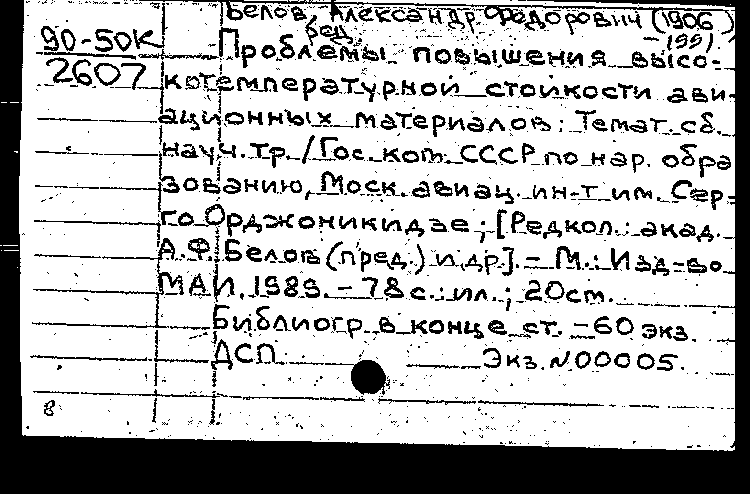 Белов, Александр Федорович (1906
90-50к ред. - 1991)
Проблемы повышения высо-
2607
котемпературной стойкости ави-
ационных материалов: Темат. сб.
науч. тр. / Гос. ком. СССР по нар. обра
зованию, Моск. авиац. ин-т им. Сер-
го Орджоникидзе; [Редкол.: акад.
А.Ф. Белов (пред.) и др]. - М.: Изд-во
МАИ, 1989. - 78 с.: ил.; 20 cm.
Библиогр в конце ст. - 60 экз.
ДСП. Экз. N 00005.
8